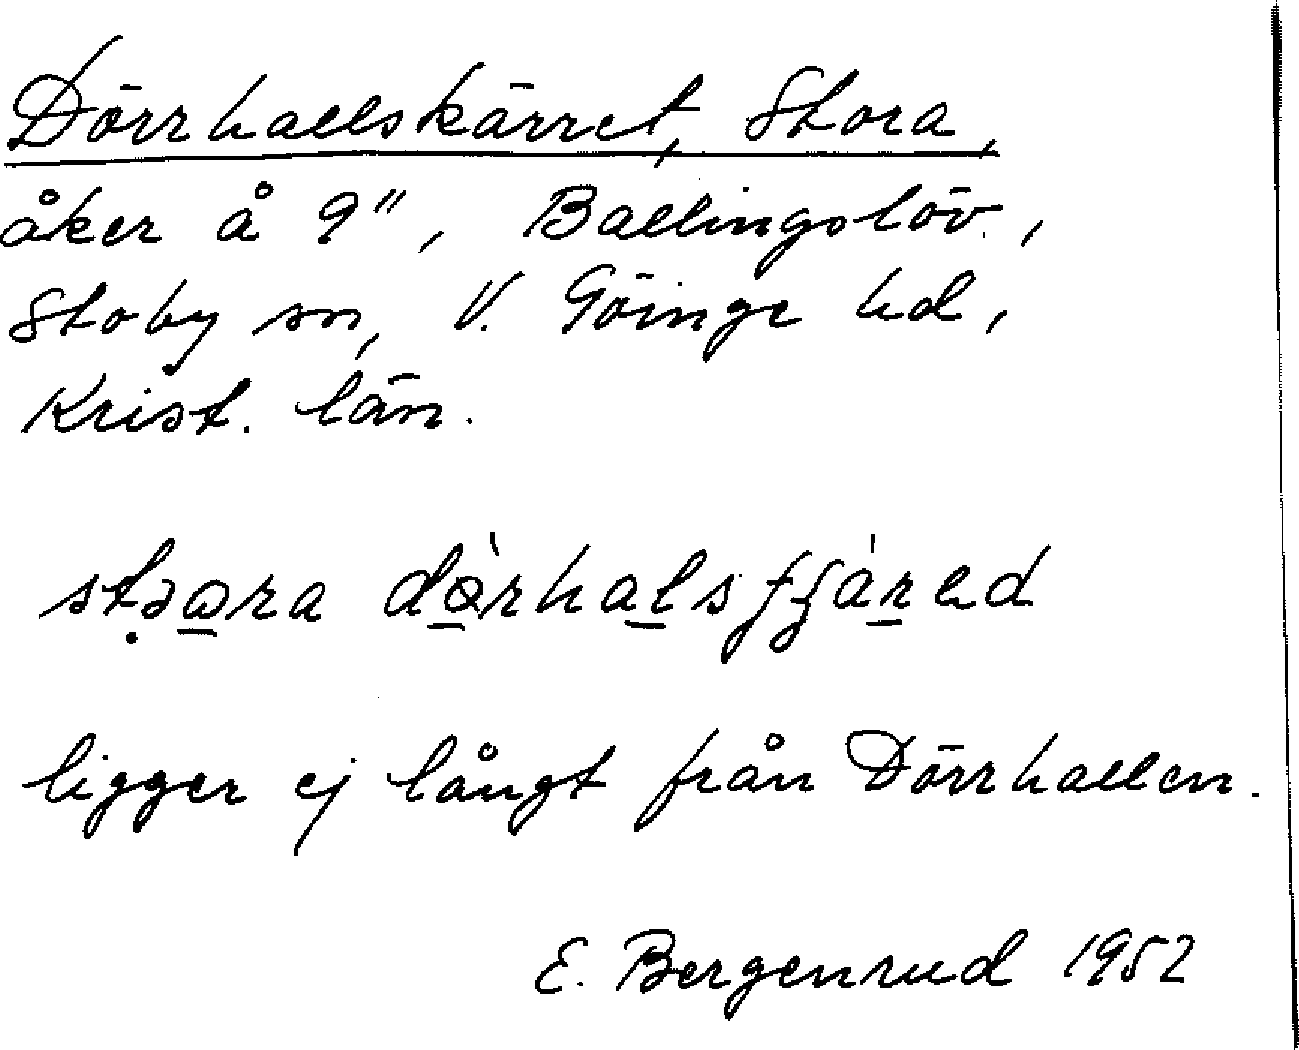 Dörrhallskärret, Stora,
åker å 9", Ballingslöv.,
Stoby sn, V. Göinge hd,
Krist. län.
ligger ej långt från Dörrhallen.
E. Bergenrud 1952